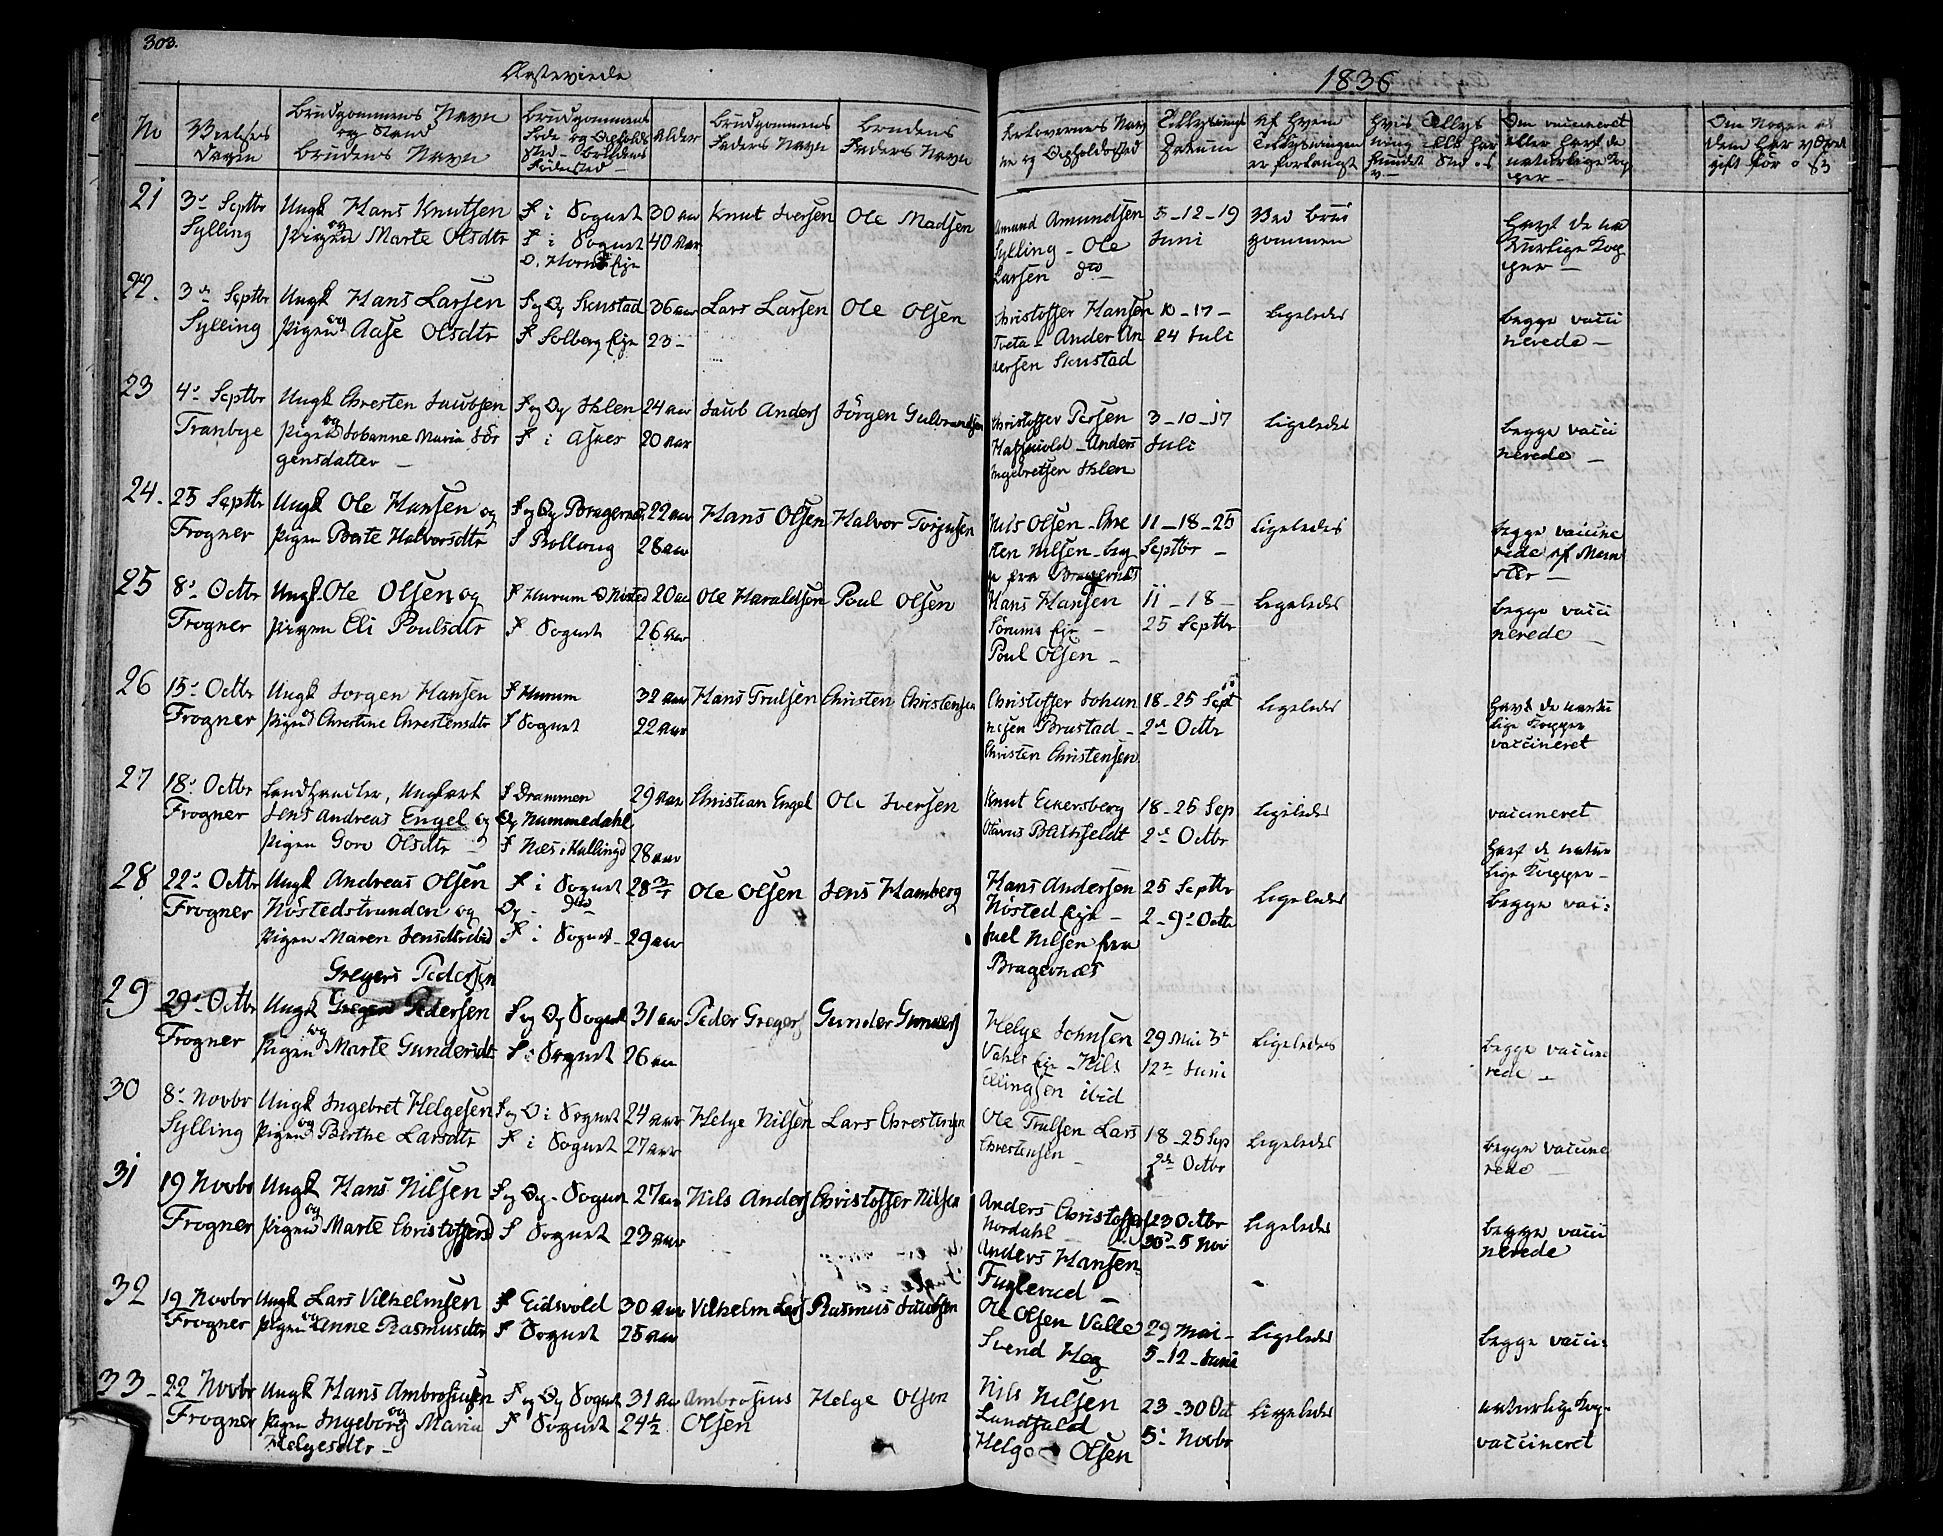 303.
Ægteviede
1836
No
Vielses Dagen
Brudgommens Navn og Stand Brudens Navn
Brudgommens Føde og Opholds Sted - Brudens Fødested -
Alder
Brudgommens Faders Navn
Brudens Faders Navn
Forlovernes Navne og Opholdssted
Tillysnings Datum
Af hvem Tillysningen er forlangt
Om vaccineret eller havt de naturlige Kopper -
21
3die Septbr Sylling
Ungk Hans Knutsen og
Pigen Marte Olsdtr
F i Sognet
F i Sognet
30 aar
40 Aar
Knut Iversen
Ole Madsen
Amund Amundsen
Sylling - Ole
Larsen dto
5 - 12 - 19
Juni
Ved Brud
gommen
havt de na
turlige Kop
per -
22.
3de Septbr Sylling
Ungk Hans Larsen og
Pigen Aase Olsdtr
F og O Skustad
F Solberg Eje
36 aar
23 -
Lars Larsen
Ole Olsen
Christoffer Hansen
Tveta - Ander An
dersen Skustad
10 - 17 -
24 Juli
Ligeledes
begge vacci
nerede -
23
4de Septbr Tranbye
Ungk Chresten Jacobsen og
Pigen Johanne Maria Jör
gensdatter -
F og Op Ihlen
F i Asker
24 aar
20 aar
Jacob Anders
Jörgen Gulbrandsen
Christoffer Persen
- Anders
Ingebretsen Ihlen
3 - 10 - 17
Juli
Ligeledes
begge vacci
nerede -
24.
25 Septbr Frogner
Ungk Ole Hansen og
Pigen Berte Halvorsdtr
F og Op Bragernæs
F
22 aar
28 aar
Hans Olsen
Halvor Torjusen
Nils Olsen - Chre
sten Nilsen - beg
ge fra Bragernæs
11 - 18 - 25
Septbr -
Ligeledes
begge vaccine
rede
25
8de Octbr Frogner
Ungk. Ole Olsen og
Pigen Eli Poulsdtr
F Hurum
F Sognet
20 aar
26 aar
Ole Haraldsen
Poul Olsen
Hans Hansen
Sörums Eje -
Poul Olsen -
11 - 18 -
25 Septbr
Ligeledes
begge vacci
nerede -
26
15de Octbr Frogner
Ungk Jorgen Hansen
Pigen Christine Chrestensdtr
F Hurum
F Sognet
32 aar
22 aar
Hans Trulsen
Christen Christensen
Christoffer Johan
nesen Brustad -
Christen Christensen
18 - 25 Sept
2de Octbr
Ligeledes
havt de natur
lige Kopper
vaccineret
27
18de Octbr Frogner
Landhandler, Ungkarl
Jens Andreas Engel og
Pigen Goro Olsdtr -
F Drammen
Op Nummedahl
F Næs i Hallingd
29 aar
28 aar
Christian Engel
Ole Iversen
Knut Eckersberg
18 - 25 Sep
2de Octbr
Ligeledes
vaccineret
havt de natur
lige Kopper -
28
22de Octbr Frogner
Ungk Andreas Olsen
Nöstedstranden og
Pigen Maren Jensdtr ibid
F i Sognet
Op - dto
F i Sognet -
28
29 aar
Ole Olsen
Jens Hamberg
Hans Andersen
Nösted Eje -
Juel Nilsen fra
Bragernæs
25 Septbr
2 - 9de Octbr
Ligeledes
begge vac:
29
29de Octbr Frogner
Gregers Pedersen
Ungk Gregers Pedersen
og Pigen Marte Gundersdt
F og Op Sognet
F i Sognet
31 aar
26 aar
Peder Gregers
Gunder Gunders
Helge Johnsen
Eje - Nils
Ellingsen ibid
29 Mai 5te
12te Juni
Ligeledes
begge vaccine
rede -
30
8de Novbr Sylling
Ungk Ingebret Helgesen
og Pigen Birthe Larsdtr
F og O i Sognet
F i Sognet
24 aar
27 aar
Helge Nilsen
Lars Chrestensen
Ole Trulsen Lars
Chrestensen -
18 - 25 Sep
2de Octbr
Ligeledes
begge vaccine
rede -
31
19 Novbr Frogner
Ungk Hans Nilsen
og Pigen Marte Christoffersd
F og Op - Sognet
F Sognet
27 aar
23 aar
Nils Anders
Christoffer Nilsen
Anders Christoffers
Nordahl -
Anders Hansen
Fuglerud -
23 Octbr
30de - 5 Nov
Ligeledes
begge vacci
nerede
32
19 Novbr Frogner
Ungk Lars Vilhelmsen
og Pigen Anne Rasmusdtr
F Eidsvold
F Sognet
30 aar
25 aar
Vilhelm Lars
Rasmus Jacobsen
Ole Olsen Valle
Svend Heg
29 Mai -
5 - 12 - Juni
Ligeledes
begge vacci:
33 -
22 Novbr Frogner
Ungk Hans Ambrosiusen
og Pigen Ingeborg Maria
Helgesdtr -
F og Op Sognet
F Sognet
31 aar
24½
Ambrosius Olsen
Helge Olsen
Nils Nilsen
Helge Olsen
23 - 30 Oct
5te Novbr
Ligeledes
naturlige Kop-
vaccineret